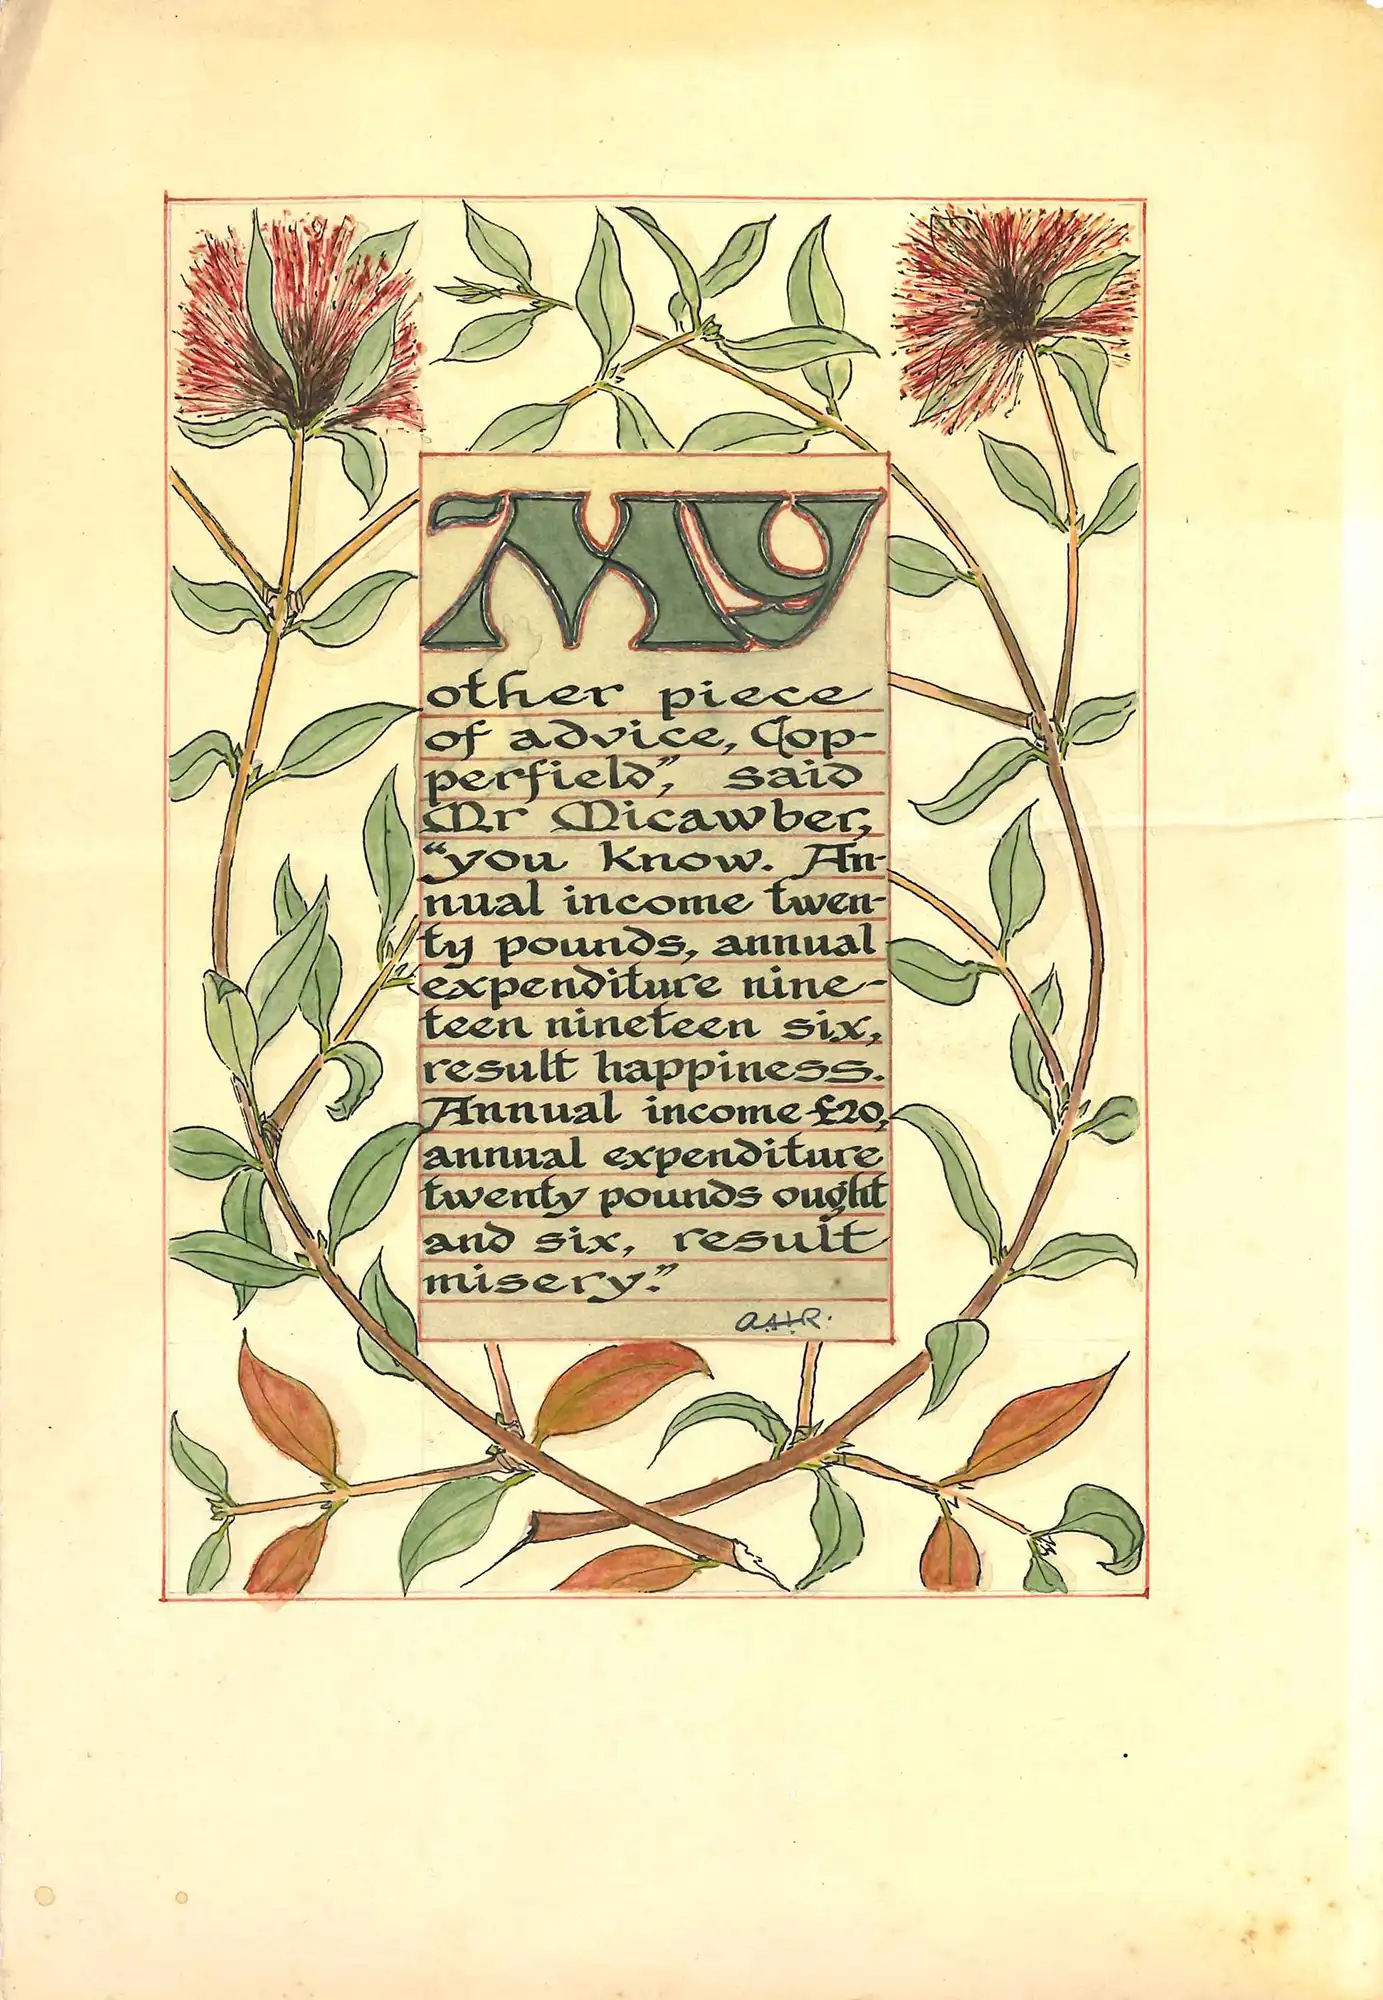 My
other piece
of advice, Cop-
perfield”, said
Mr Micawber,
“you know. An-
nual income twen-
ty pounds, annual
expenditure nine-
teen nineteen six,
result happiness.
Annual income £20,
annual expenditure
twenty pounds ought
and six, result
misery.”
A.H.R.